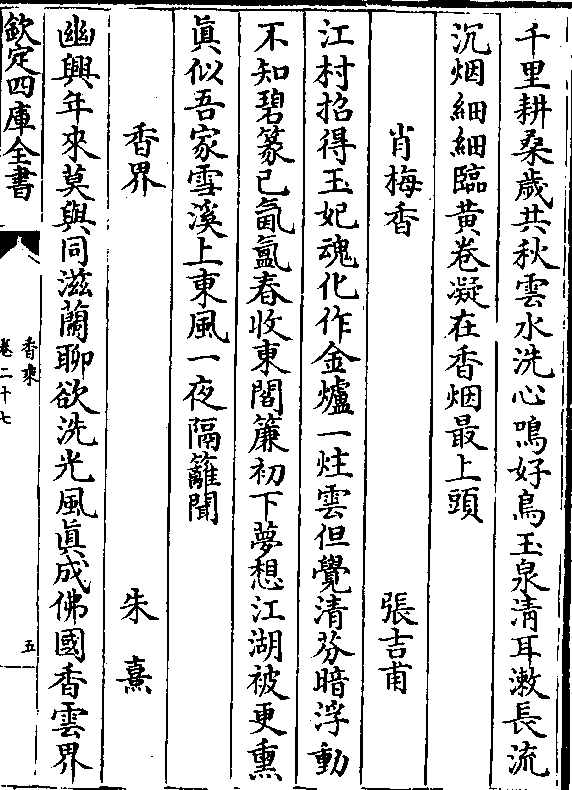 千里耕桑歲共秋雲水洗心鳴好鳥玉泉淸耳漱長流
沉烟細細臨黄卷凝在香烟最上頭
肖梅香 張吉甫
江村招得玉妃魂化作金爐一炷雲但覺清芬暗浮動
不知碧篆已氤氲春收東閣簾初下夢想江湖被更熏
眞似吾家雪溪上東風一夜隔籬聞
香界 朱熹
幽興年來莫與同滋蘭聊欲洗光風眞成佛國香雲界
欽定四庫全書
香乘
卷二十七
五